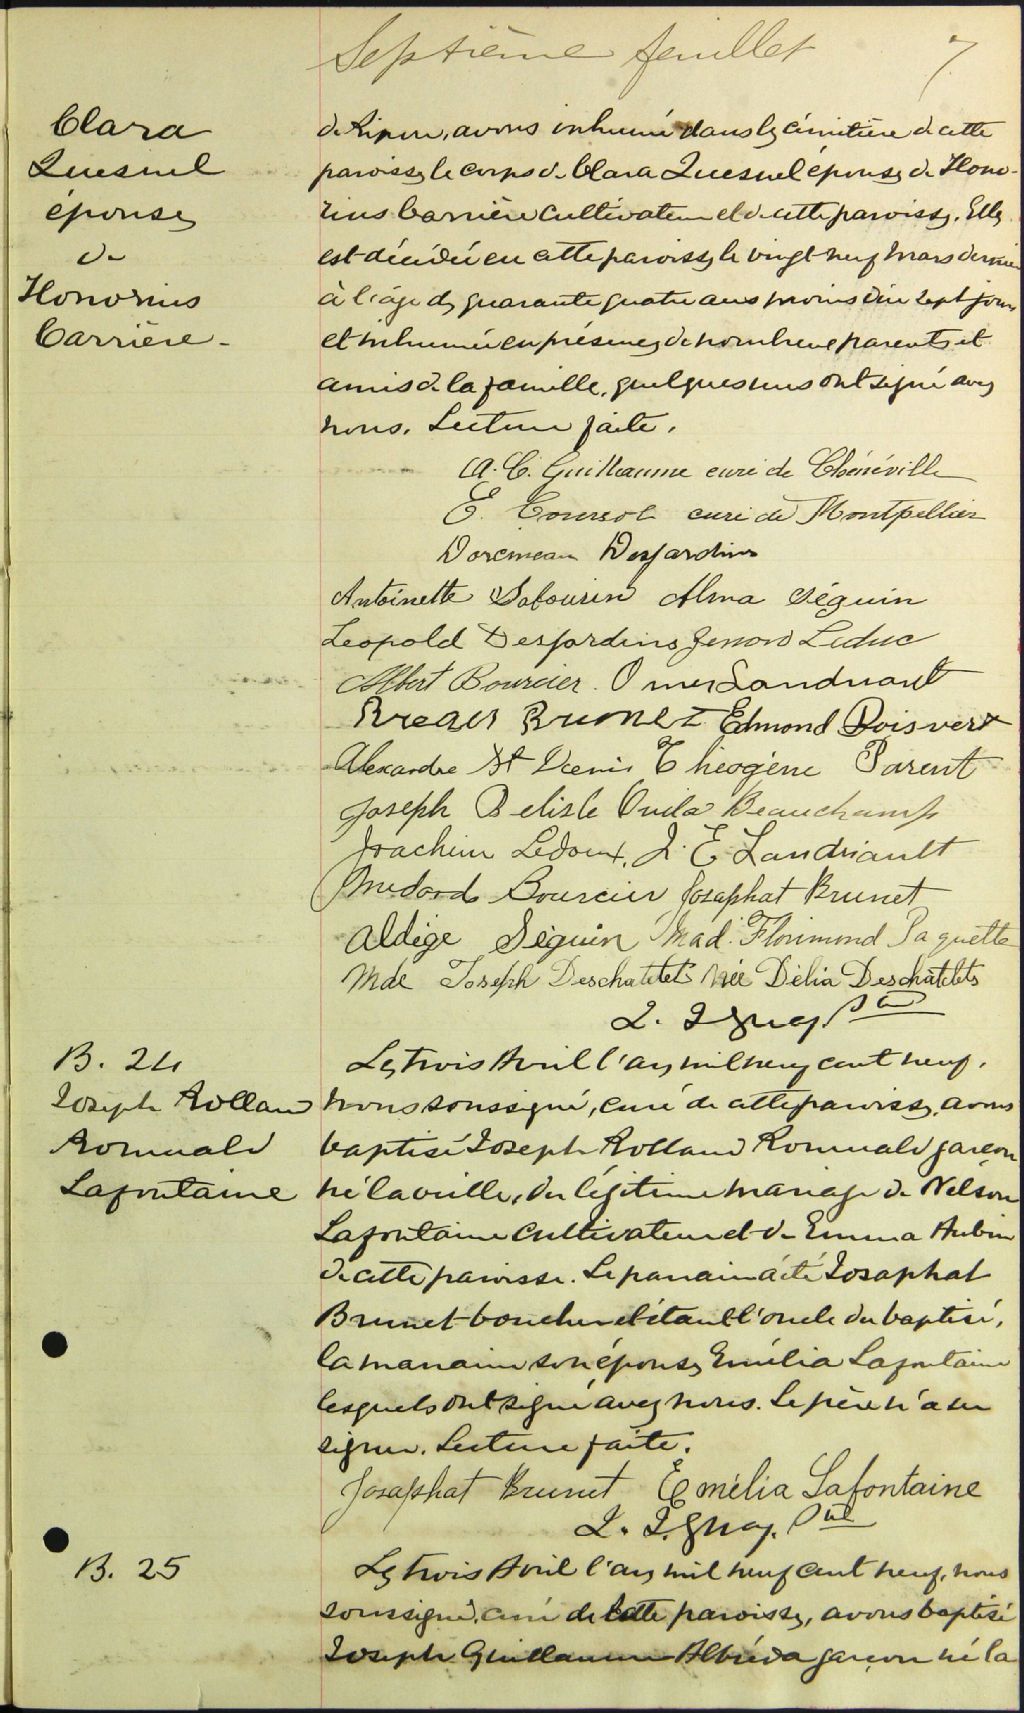 Septième feuillet 7
Clara
Quesnel
épouse
de
Honorius
Carrière -
de Ripon, avons inhumé dans le cimetière de cette
paroisse le corps de Clara Quesnel épouse de Hono-
rius Carrière cultivateur et de cette paroisse. Elle
est décédée en cette paroisse le vingt neuf Mars dernier
à l'âge de quarante quatre ans moins dix sept jours
et inhumée en présence de nombreux parents et
amis de la famille, quelques uns ont signé avec
nous. Lecture faite.
A. C. Guillaume curé de Chénéville
E. Coursol curé de Montpellier
Dorcineau Desjardins
Antoinette Sabourin Alma Séguin
Leopold Desjardins Zenon Leduc
Albert Bourcier. Omer Landriault
Brunet Edmond Boisvert
Alexandre St Denis Théogène Parent
Joseph Belisle Ovila Beauchamp
Joachim Ledoux, J. E Landriault
Medard Bourcier Josaphat Brunet
Aldège Séguin Mad. Florimond Paquette
Mde Joseph Deschatelets Née Délia Deschâtelets
B. 24
Joseph Rolland
Romuald
Lafontaine
Le trois Avril l'an mil neuf cent neuf,
Nous soussigné, curé de cette paroisse, avons
baptisé Joseph Rolland Romuald garçon
né la veille, du légitime mariage de Nelson
Lafontaine cultivateur et de Emma Aubin
de cette paroisse. Le parrain a été Josaphat
Brunet boucher et étant l'oncle du baptisé,
la marraine son épouse Emélia Lafontaine
lesquels ont signé avec nous. Le père n'a su
signer. Lecture faite.
Josaphat Brunet Emélia Lafontaine
B. 25
Le trois Avril l'an mil neuf cent neuf, nous
soussigné, curé de cette paroisse, avons baptisé
Joseph Guillaume Albréda garçon né la